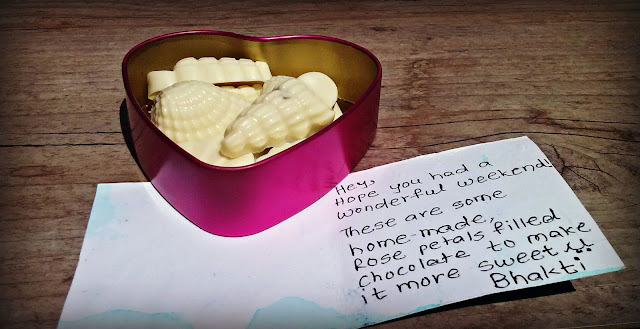 Hey,
Hope you had a
wonderful weekend!
These are some
home-made,
Rose petals filled
chocolate to make
it more sweet
Bhakti